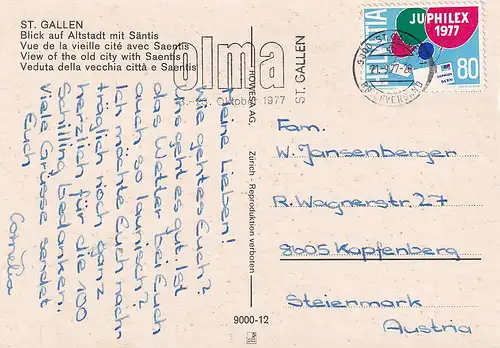 ST. GALLEN
Blick auf Altstadt mit Säntis
Vue de la vieille cité avec Saentis
View of the old city with Saentis
Veduta della vecchia città e Saentis
olma
Oktober 1977
ST. GALLEN
HELVETIA
JUPHILEX
1977
80
Meine Lieben!
Wie geht's Euch?
Mir geht es gut. Ist
das Wetter bei Euch
auch so launisch?
Ich möchte Euch nach-
träglich noch ganz
herzlich für die 100
Schilling bedanken.
Viele Grüsse sendet
Euch
Cornelia
ROWESA AG,
Zürich - Reproduktion verboten
9000-12
Fam.
W. Jansenberger
R. Wagnerstr 27
8605 Kapfenberg
Steiermark
Austria